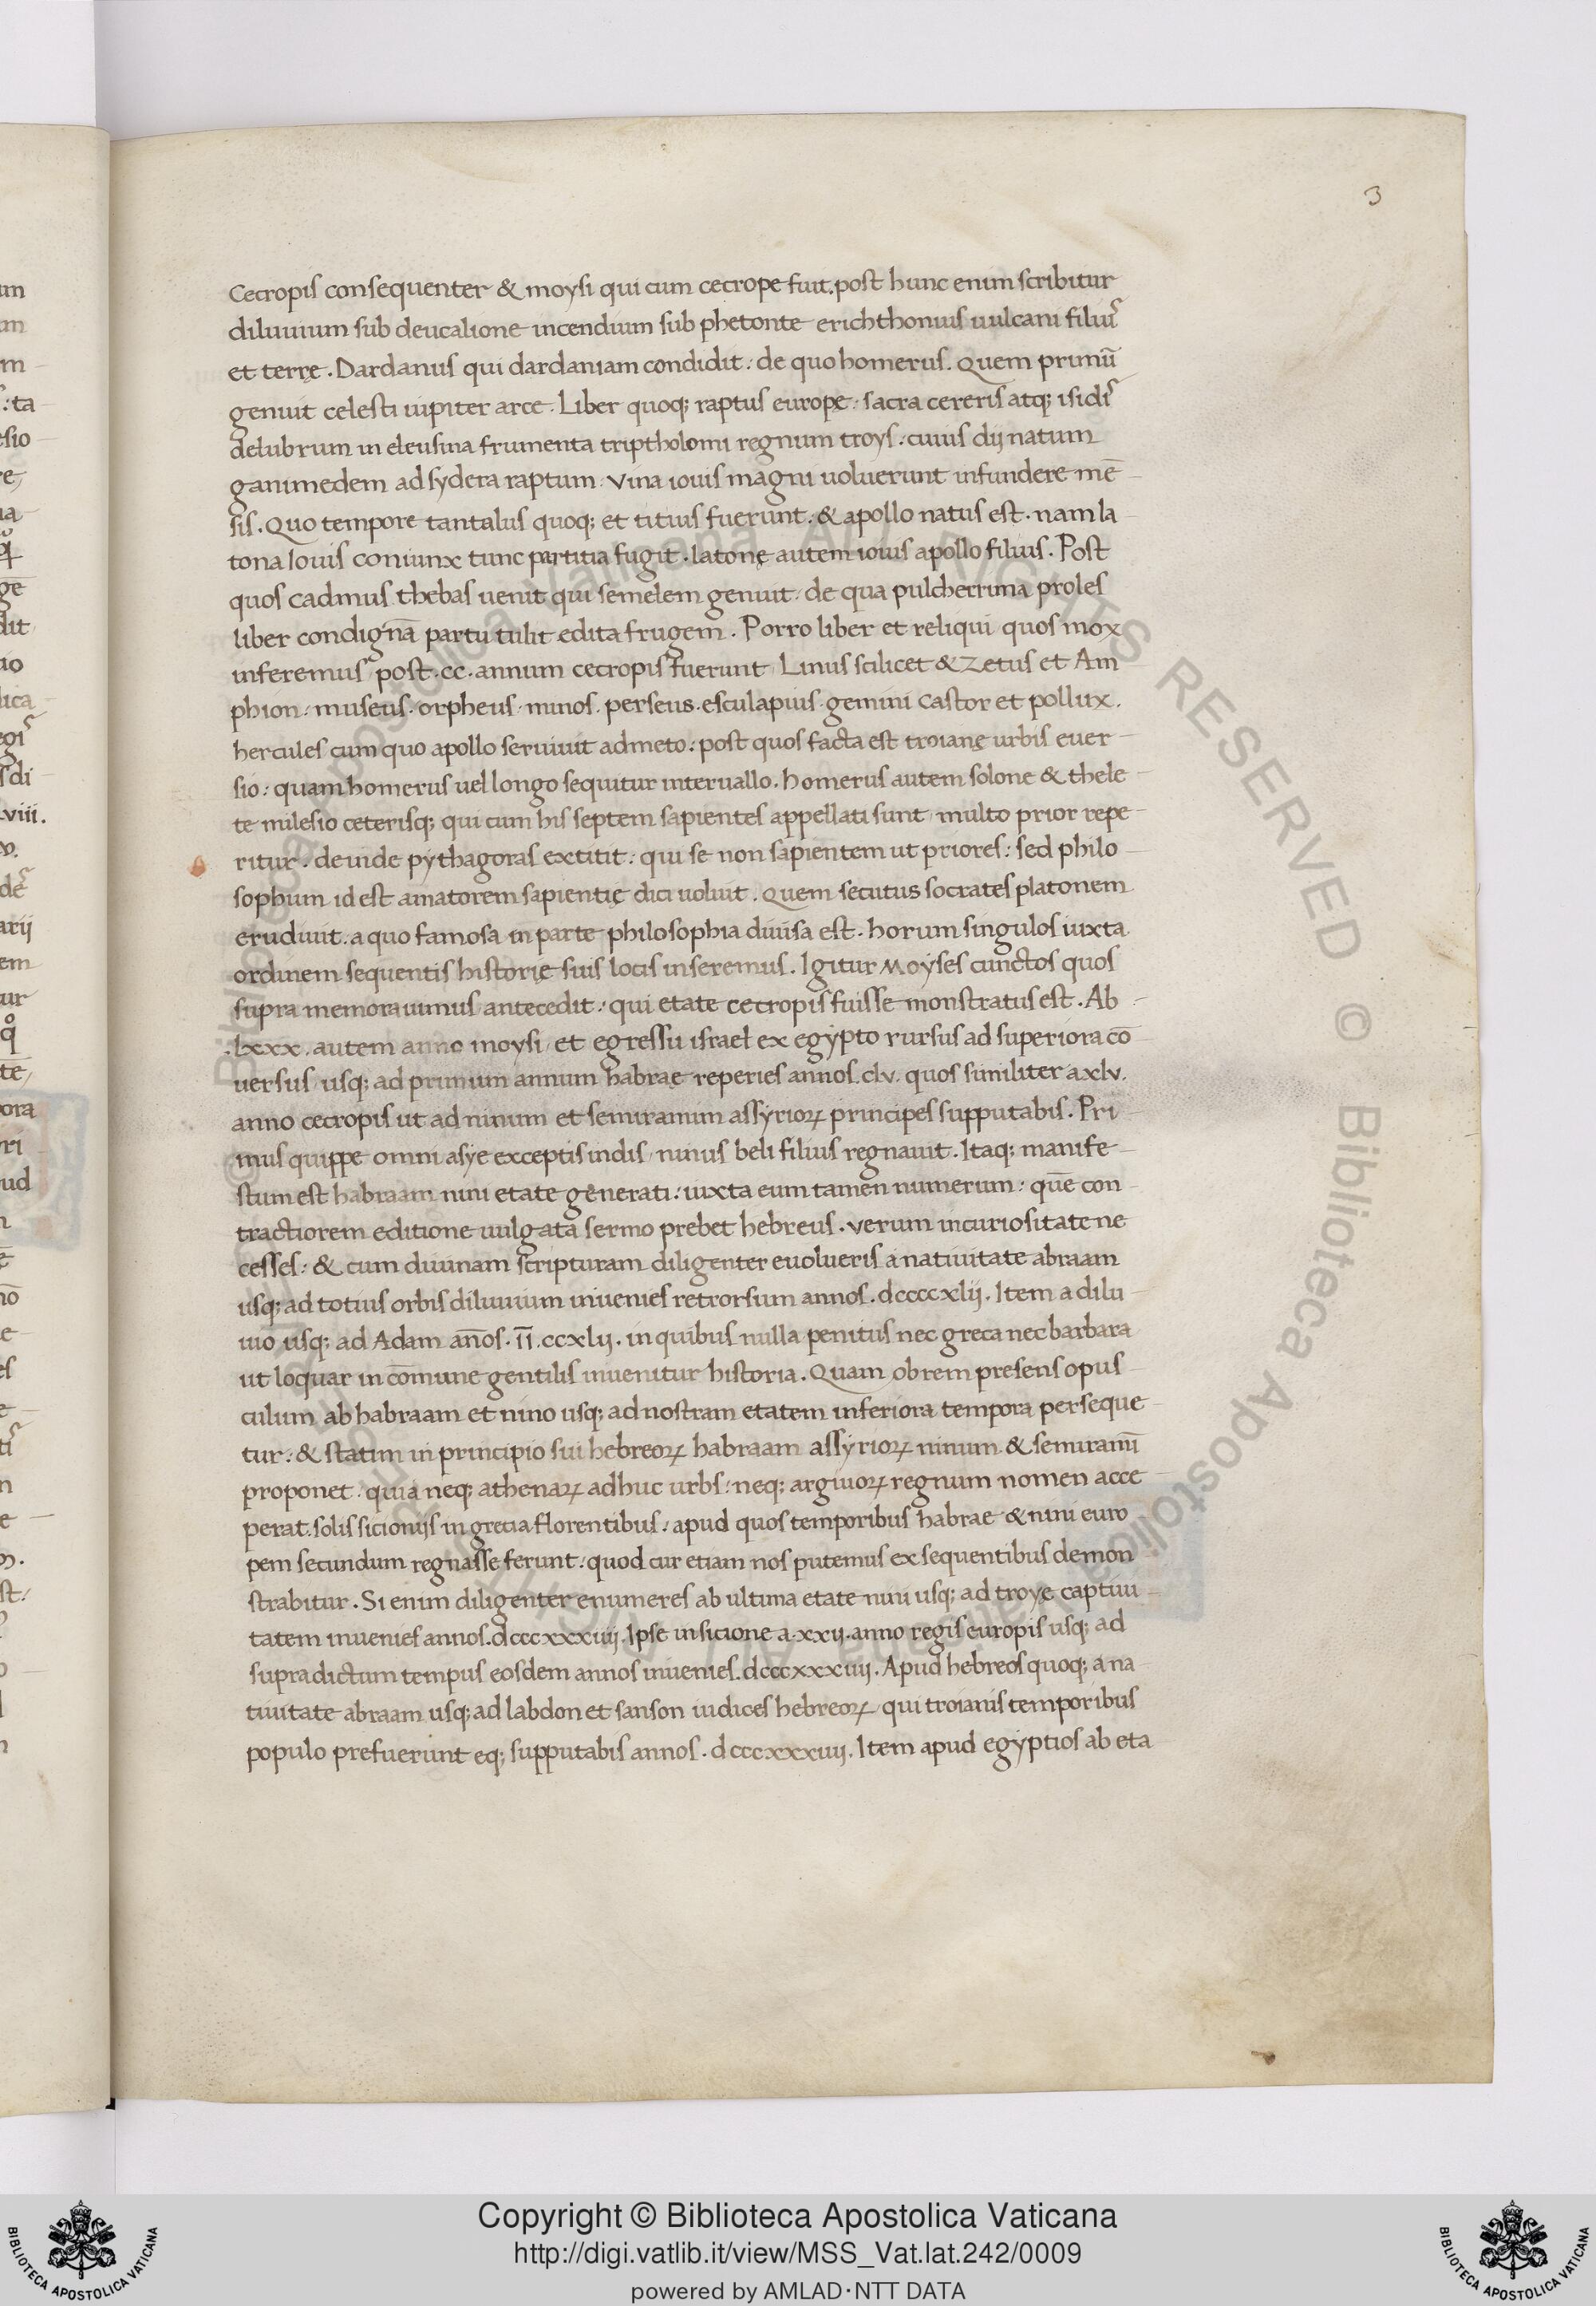 3
Cecropis consequenter & moysi qui cum cecrope fuit. post hunc enim scribitur
diluuium sub deucalione incendium sub phetonte erichthonius uulcani filiuſ
et terrę. Dardanus qui dardaniam condidit: de quo homerus. Quem primū
genuit celesti iupiter arce. Liber quoq; raptus europę: sacra cereris atq; isidiſ
delubrum in eleusina frumenta triptholomi regnum troys: cuius dij natum
ganimedem ad sydera raptum. Vina iouis magni uoluerunt infundere mē
sis. Quo tempore tantalus quoq; et titius fuerunt. & apollo natus est. nam la
tona Iouis coniunx tunc partitia fugit. latonę autem iouis apollo filius. Post
quos cadmus thebas uenit qui semelem genuit: de qua pulcherrima proles
liber condignā partu tulit edita frugem. Porro liber et reliqui quos mox
inferemus post .cc. annum cecropis fuerunt Linus scilicet & Zetus et Am
phion. museus. orpheus. minos. perseus. esculapius. gemini Castor et pollux.
hercules cum quo apollo seruiuit admeto: post quos facta est troianę urbis euer
sio: quam homerus uel longo sequitur interuallo. homerus autem solone & thele
te milesio ceterisq; qui cum his septem sapientes appellati sunt multo prior repe
ritur. deinde pythagoras extitit: qui se non sapientem ut priores: sed philo
sophum id est amatorem sapientię dici uoluit. Quem secutus socrates platonem
erudiuit. a quo famosa in parte philosophia diuisa est. horum singulos iuxta
ordinem sequentis historię suis locis inseremus. Igitur Moyses cunctos quos
supra memorauimus antecedit: qui etate cecropis fuisse monstratus est. Ab
.lxxx. autem anno moysi et egressu israel ex egypto rursus ad superiora cō
uersus usq; ad primum annum habraę reperies annos .clv. quos similiter a xlv.
anno cecropis ut ad ninum et semiramim assyrioꝝ principes supputabis. Pri
mus quippe omni asye exceptis indis ninus beli filius regnauit. Itaq; manife
stum est habraam nini etate generati: iuxta eum tamen numerum: quē con
tractiorem editione uulgata sermo prebet hebreus. verum incuriositate ne
cesses: & cum diuinam scripturam diligenter euolueris a natiuitate abraam
usq; ad totius orbis diluuium inuenies retrorsum annos. dccccxlij. Item a dilu
uio usq; ad Adam an̄os. I̅I̅. ccxlij. in quibus nulla penitus nec greca nec barbara
ut loquar in cōmune gentilis inuenitur historia. Quam obrem presens opus
culum ab habraam et nino usq; ad nostram etatem inferiora tempora perseque
tur: & statim in principio sui hebreoꝝ habraam assyrioꝝ ninum & semiramī
proponet. quia neq; athenaꝝ adhuc urbs: neq; argiuoꝝ regnum nomen acce
perat. solis sicionijs in grecia florentibus: apud quos temporibus habrae & nini euro
pem secundum regnasse ferunt: quod cur etiam nos putemus ex sequentibus demon
strabitur. Si enim diligenter enumeres ab ultima etate nini usq; ad troyę captiui
tatem inuenies annos. dcccxxxiiij. Ipse in sicione a .xxij. anno regis europis usq; ad
supradictum tempus eosdem annos inuenies. dcccxxxiiij. Apud hebreos quoq; a na
tiuitate abraam usq; ad labdon et sanson iudices hebreoꝝ qui troianis temporibus
populo prefuerunt eq; supputabis annos. dcccxxxiiij. Item apud egyptios ab eta
Copyright © Biblioteca Apostolica Vaticana
http://digi.vatlib.it/view/MSS_Vat.lat.242/0009
powered by AMLAD·NTT DATA
BIBLIOTECA APOSTOLICA VATICANA
BIBLIOTECA APOSTOLICA VATICANA